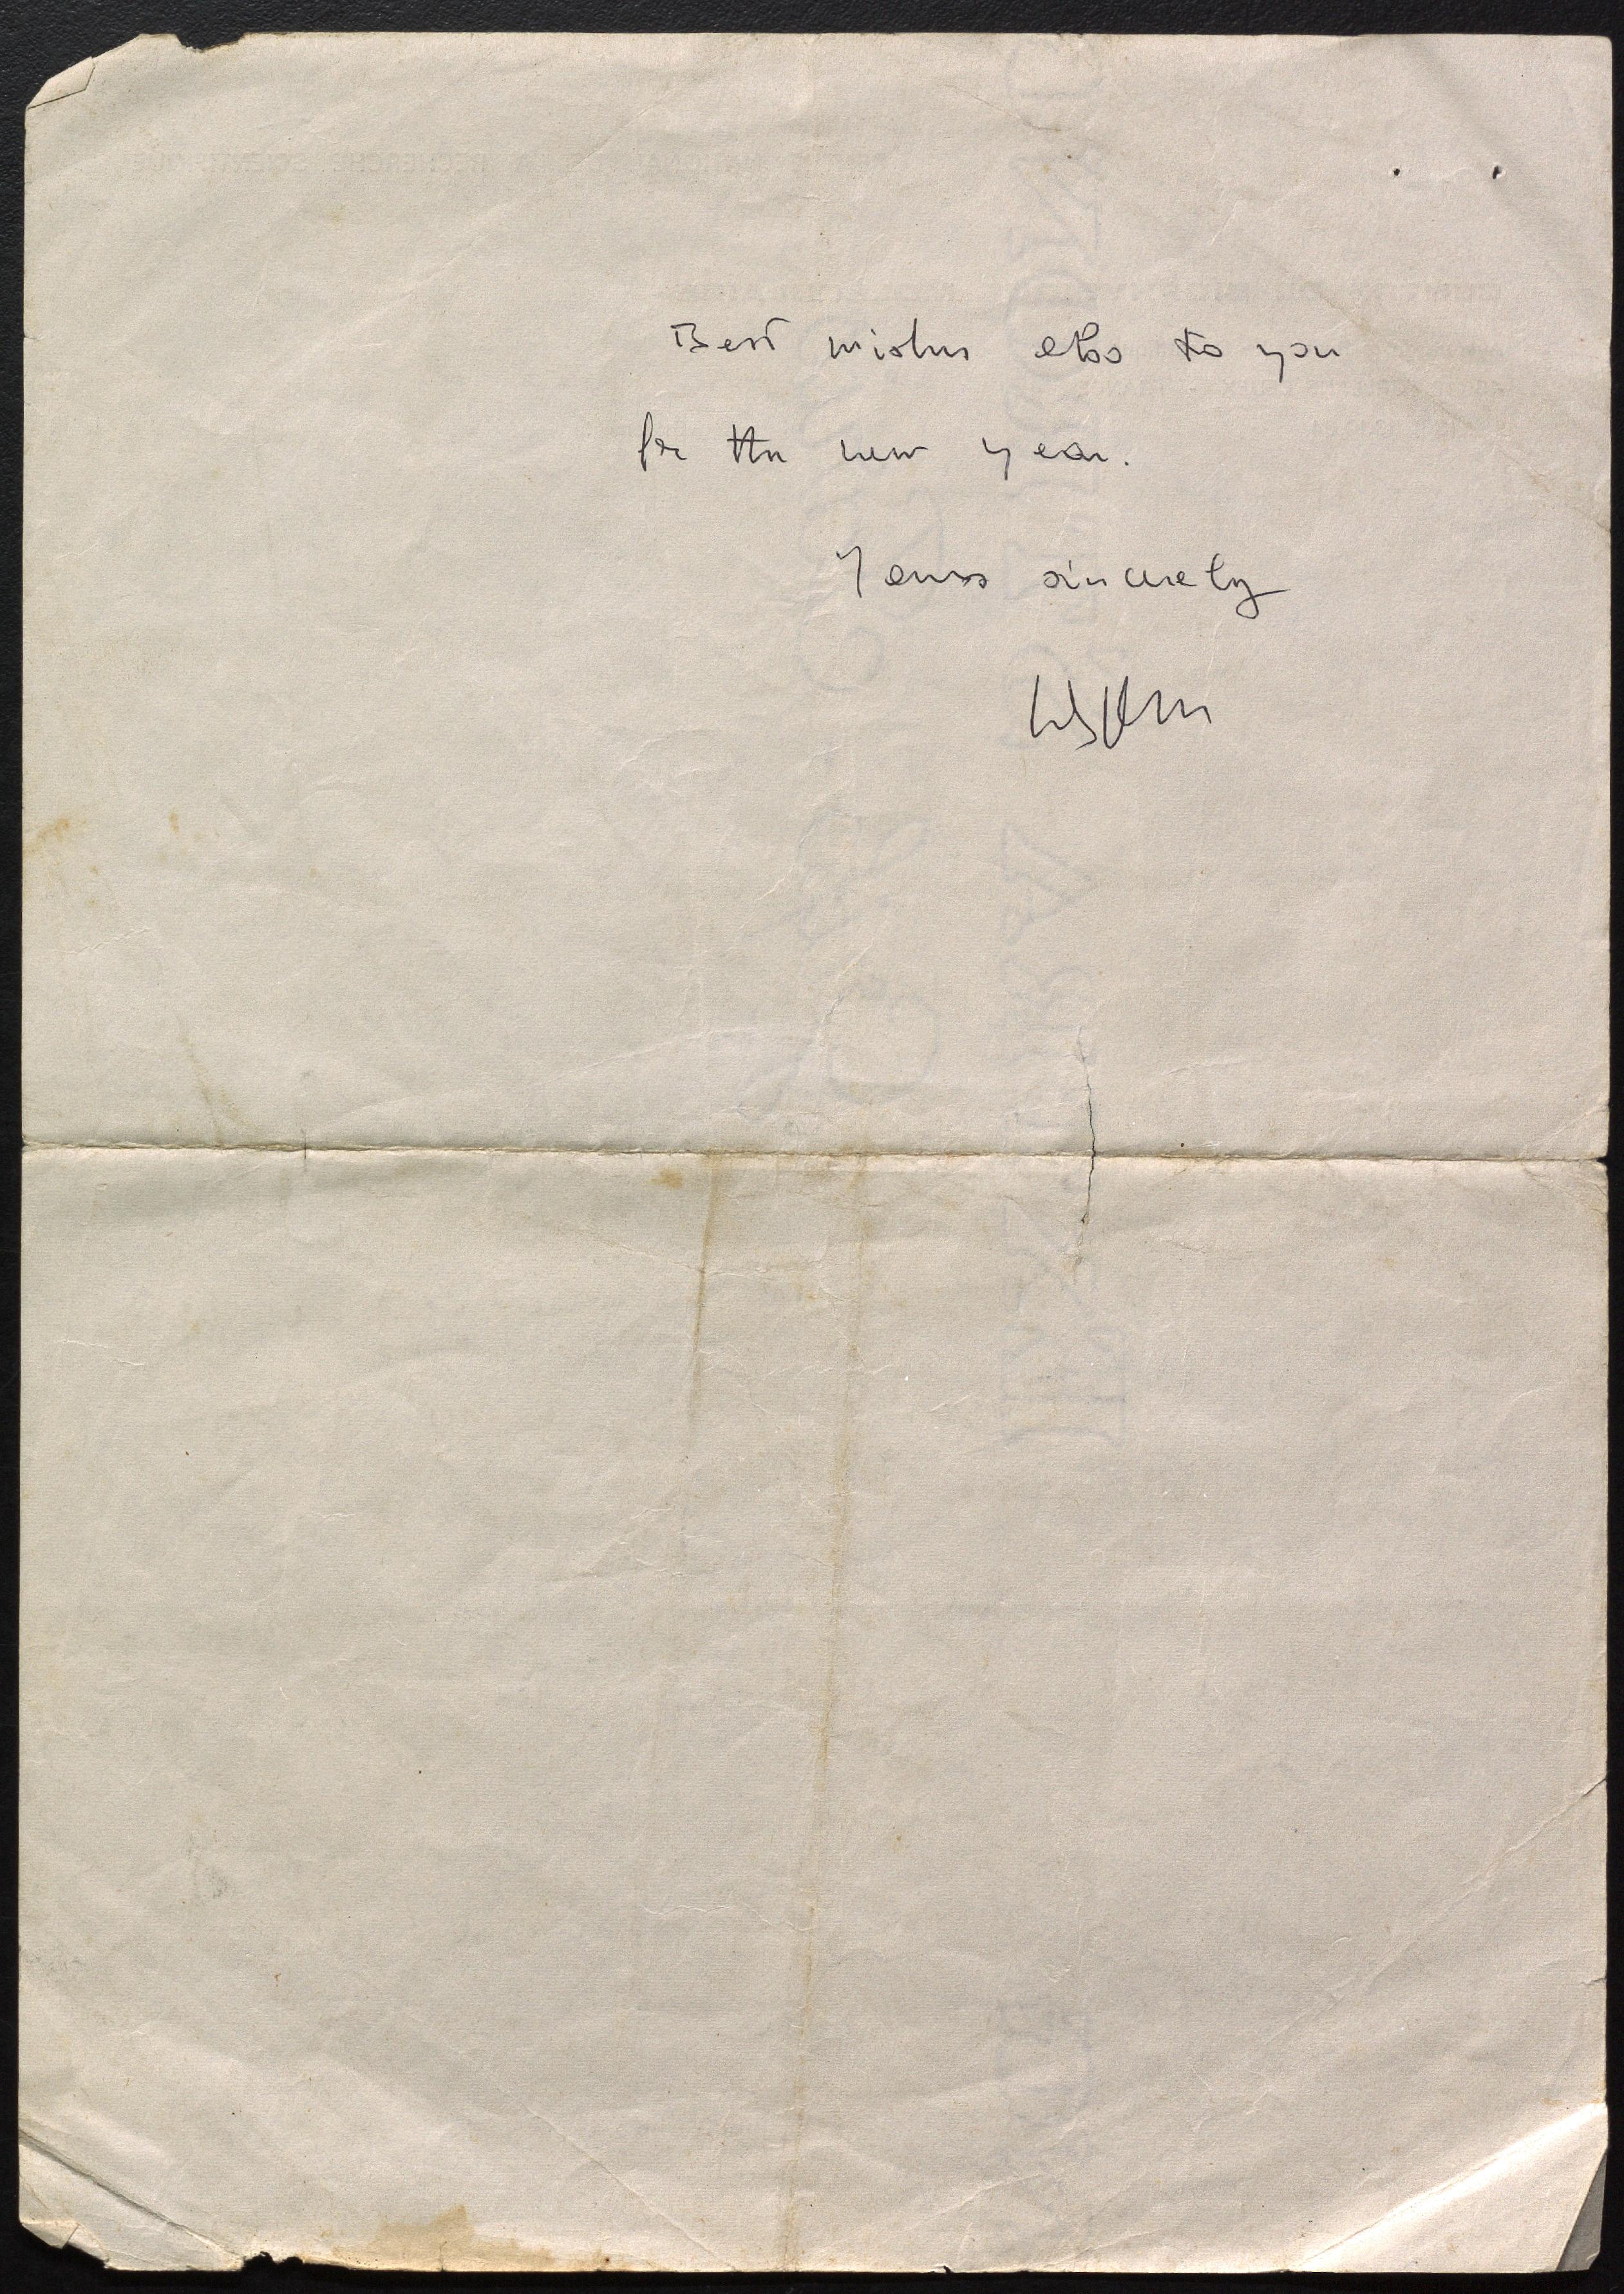 Best wishes also to you
for the new year.
Yours sincerely